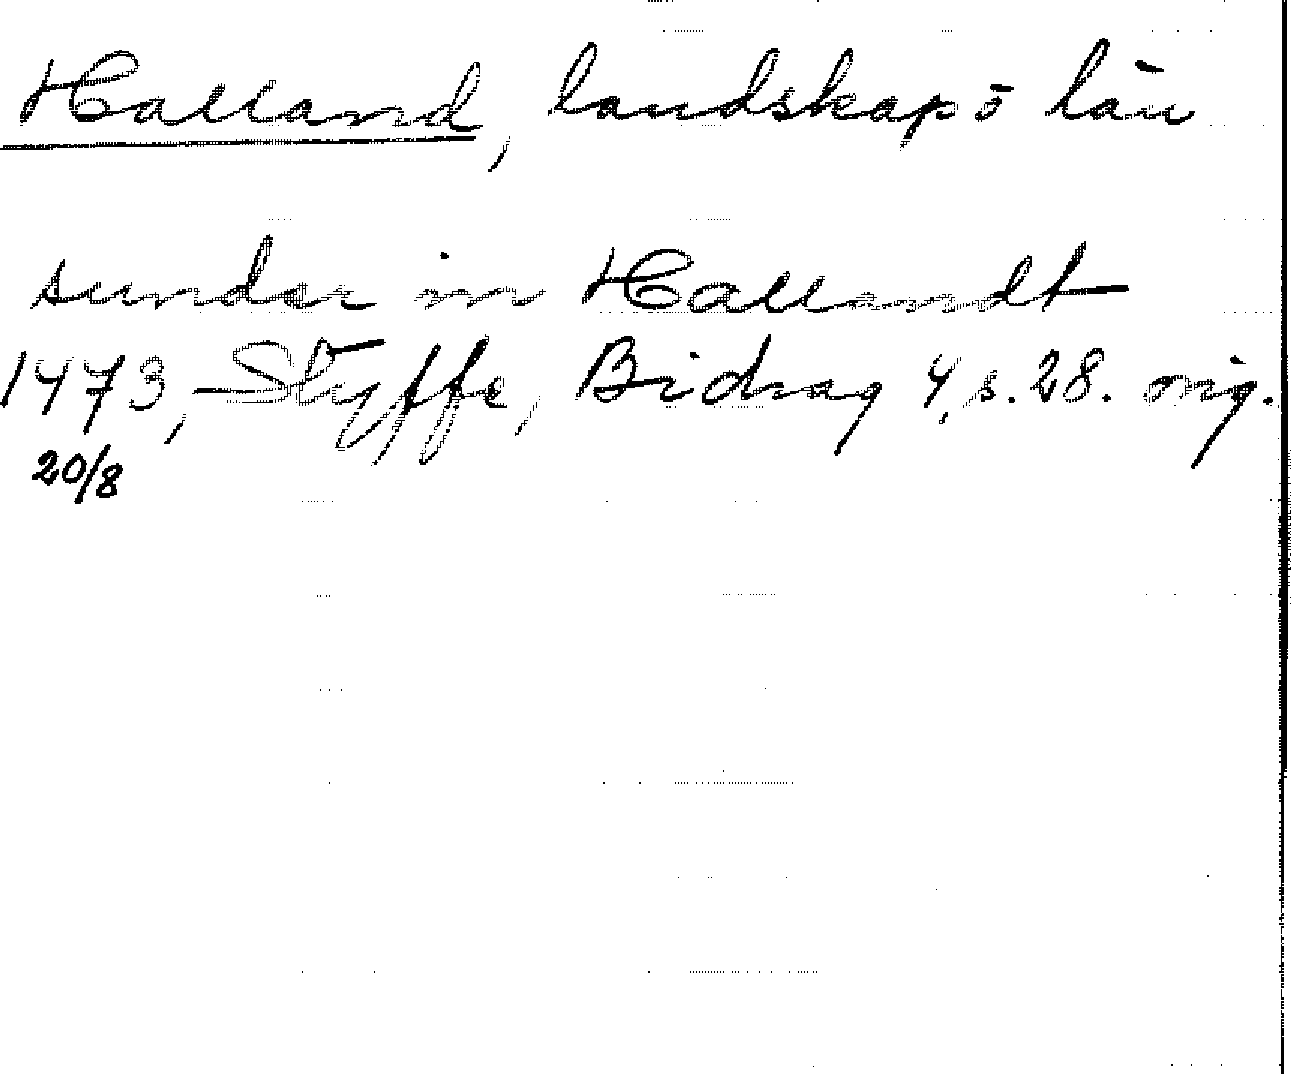 Halland, landskap ö län
sunder in Hallandt
1473, Styffe, Bidrag 4, s. 28. orig.
20/8